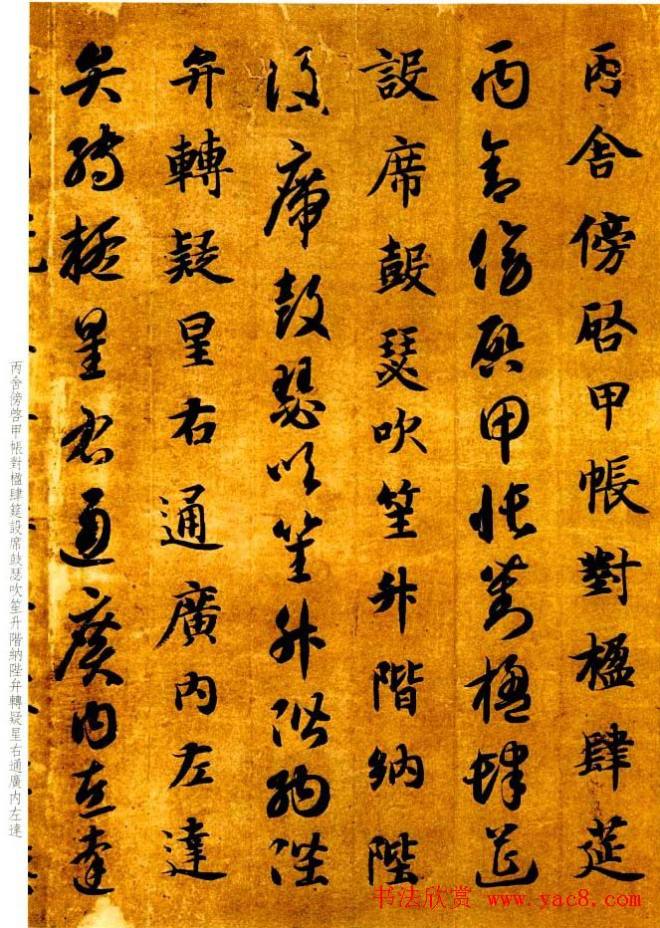 丙舍傍啓甲帳對楹肆莚
丙舍傍啓甲帳對楹肆莚
設席鼓瑟吹笙升階納陛
設席鼓瑟吹笙升階納陛
弁轉疑星右通廣內左達
弁轉疑星右通廣內左達
丙舍傍啓甲帳對楹肆筵設席鼓瑟吹笙升階納陛弁轉疑星右通廣内左達
书法欣赏 www.yac8.com